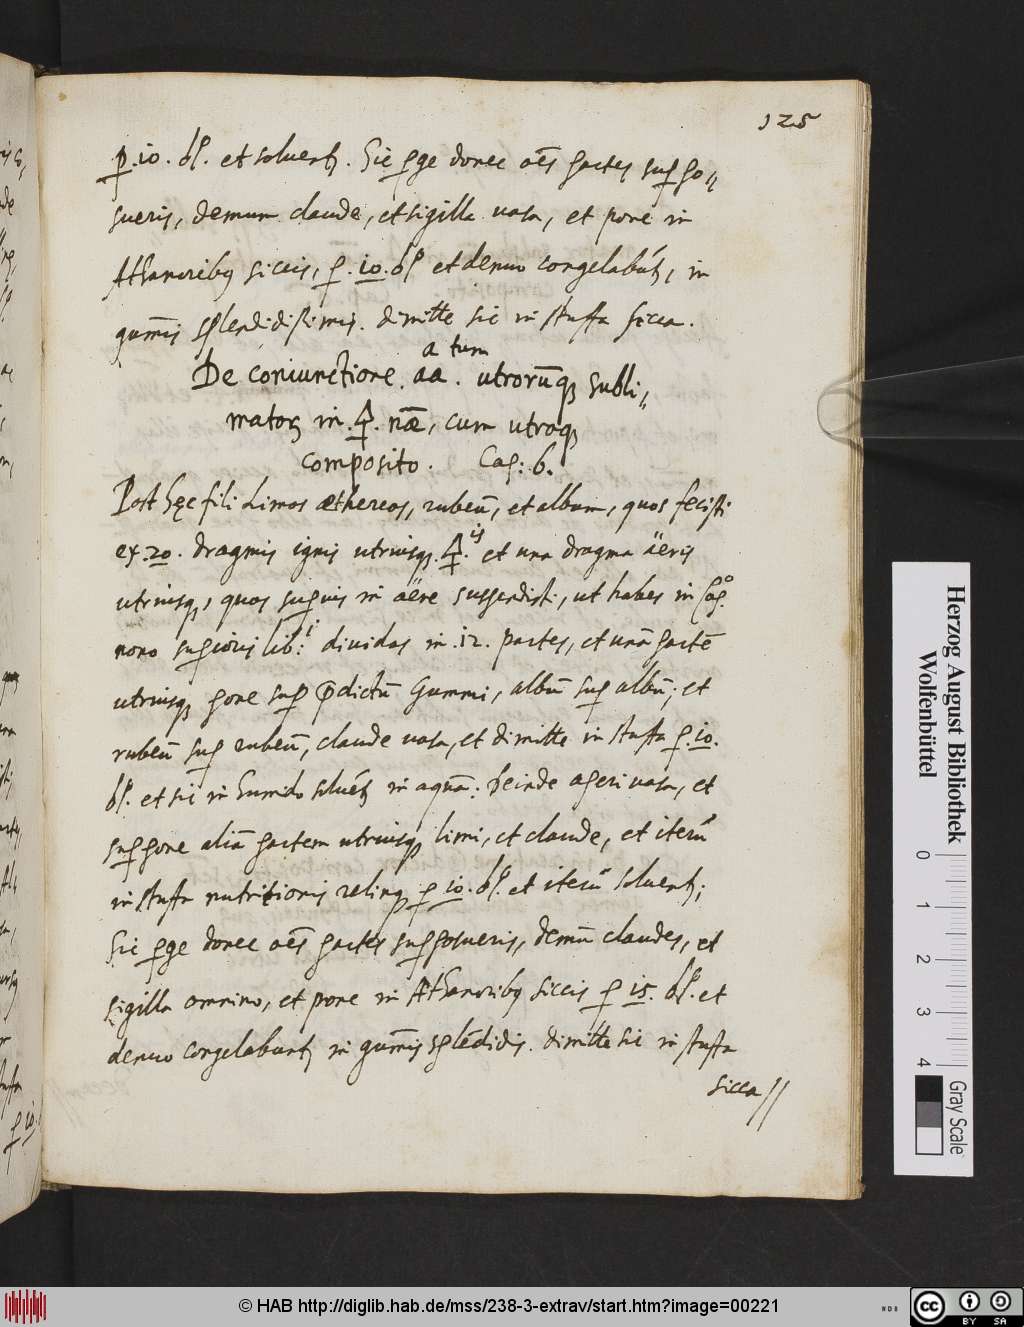 125
p. 10. dſ. et soluent̃. Sic ꝑge donec oẽs partes sup̱po⸗
sueris, demum claude, et sigilla vasa, et pone in
Athanoribꝰ siccis, p. 10. dſ. et denuo congelabũt, in
gum̃is splendidiſsimis. dimitte sic in stuffa sicca.
a tum
De coniunctione. aa. utrorũq̨ subli⸗
matoꝝ in. 🜍. næ̃, cum utroq̨
composito. Cap: 6.
Post hęc fili Limos æthereos, rubeũ, et album, quos fecisti
ex. 20. dragmis ignis utriusq̨. 🜍.is et una dragma äeris
utriusq̨, quos superius in aëre suspendisti, ut habes in Cap.º
nono sup̱ioris lib: i. dividas in. 12. partes, et unã partẽ
utriusq̨ pone sup̱ p̃dictũ Gummi, albũ sup̱ albũ; et
rubeũ sup̱ rubeũ, claude vasa, et dimitte in stuffa p. 10.
dſ. et sic in humido soluẽt in aquã; Deinde aperi vasa, et
sup̱pone aliã partem utriusq̨ limi, et claude, et iterũ
in stuffa nutritionis relinq̨ p. 10. dſ. et iterũ soluent̃;
Sic ꝑge donec oẽs partes sup̱posueris, demũ claudes, et
sigilla omnino, et pone in Athanoribꝰ siccis p. 15. dſ. et
denuo congelabunt̃ in gum̃is splẽdidis. dimitte sic in stuffa
sicca //
Herzog August Bibliothek
Wolfenbüttel
0 1 2 3 4
Gray Scale
© HAB http://diglib.hab.de/mss/238-3-extrav/start.htm?image=00221
cc BY SA